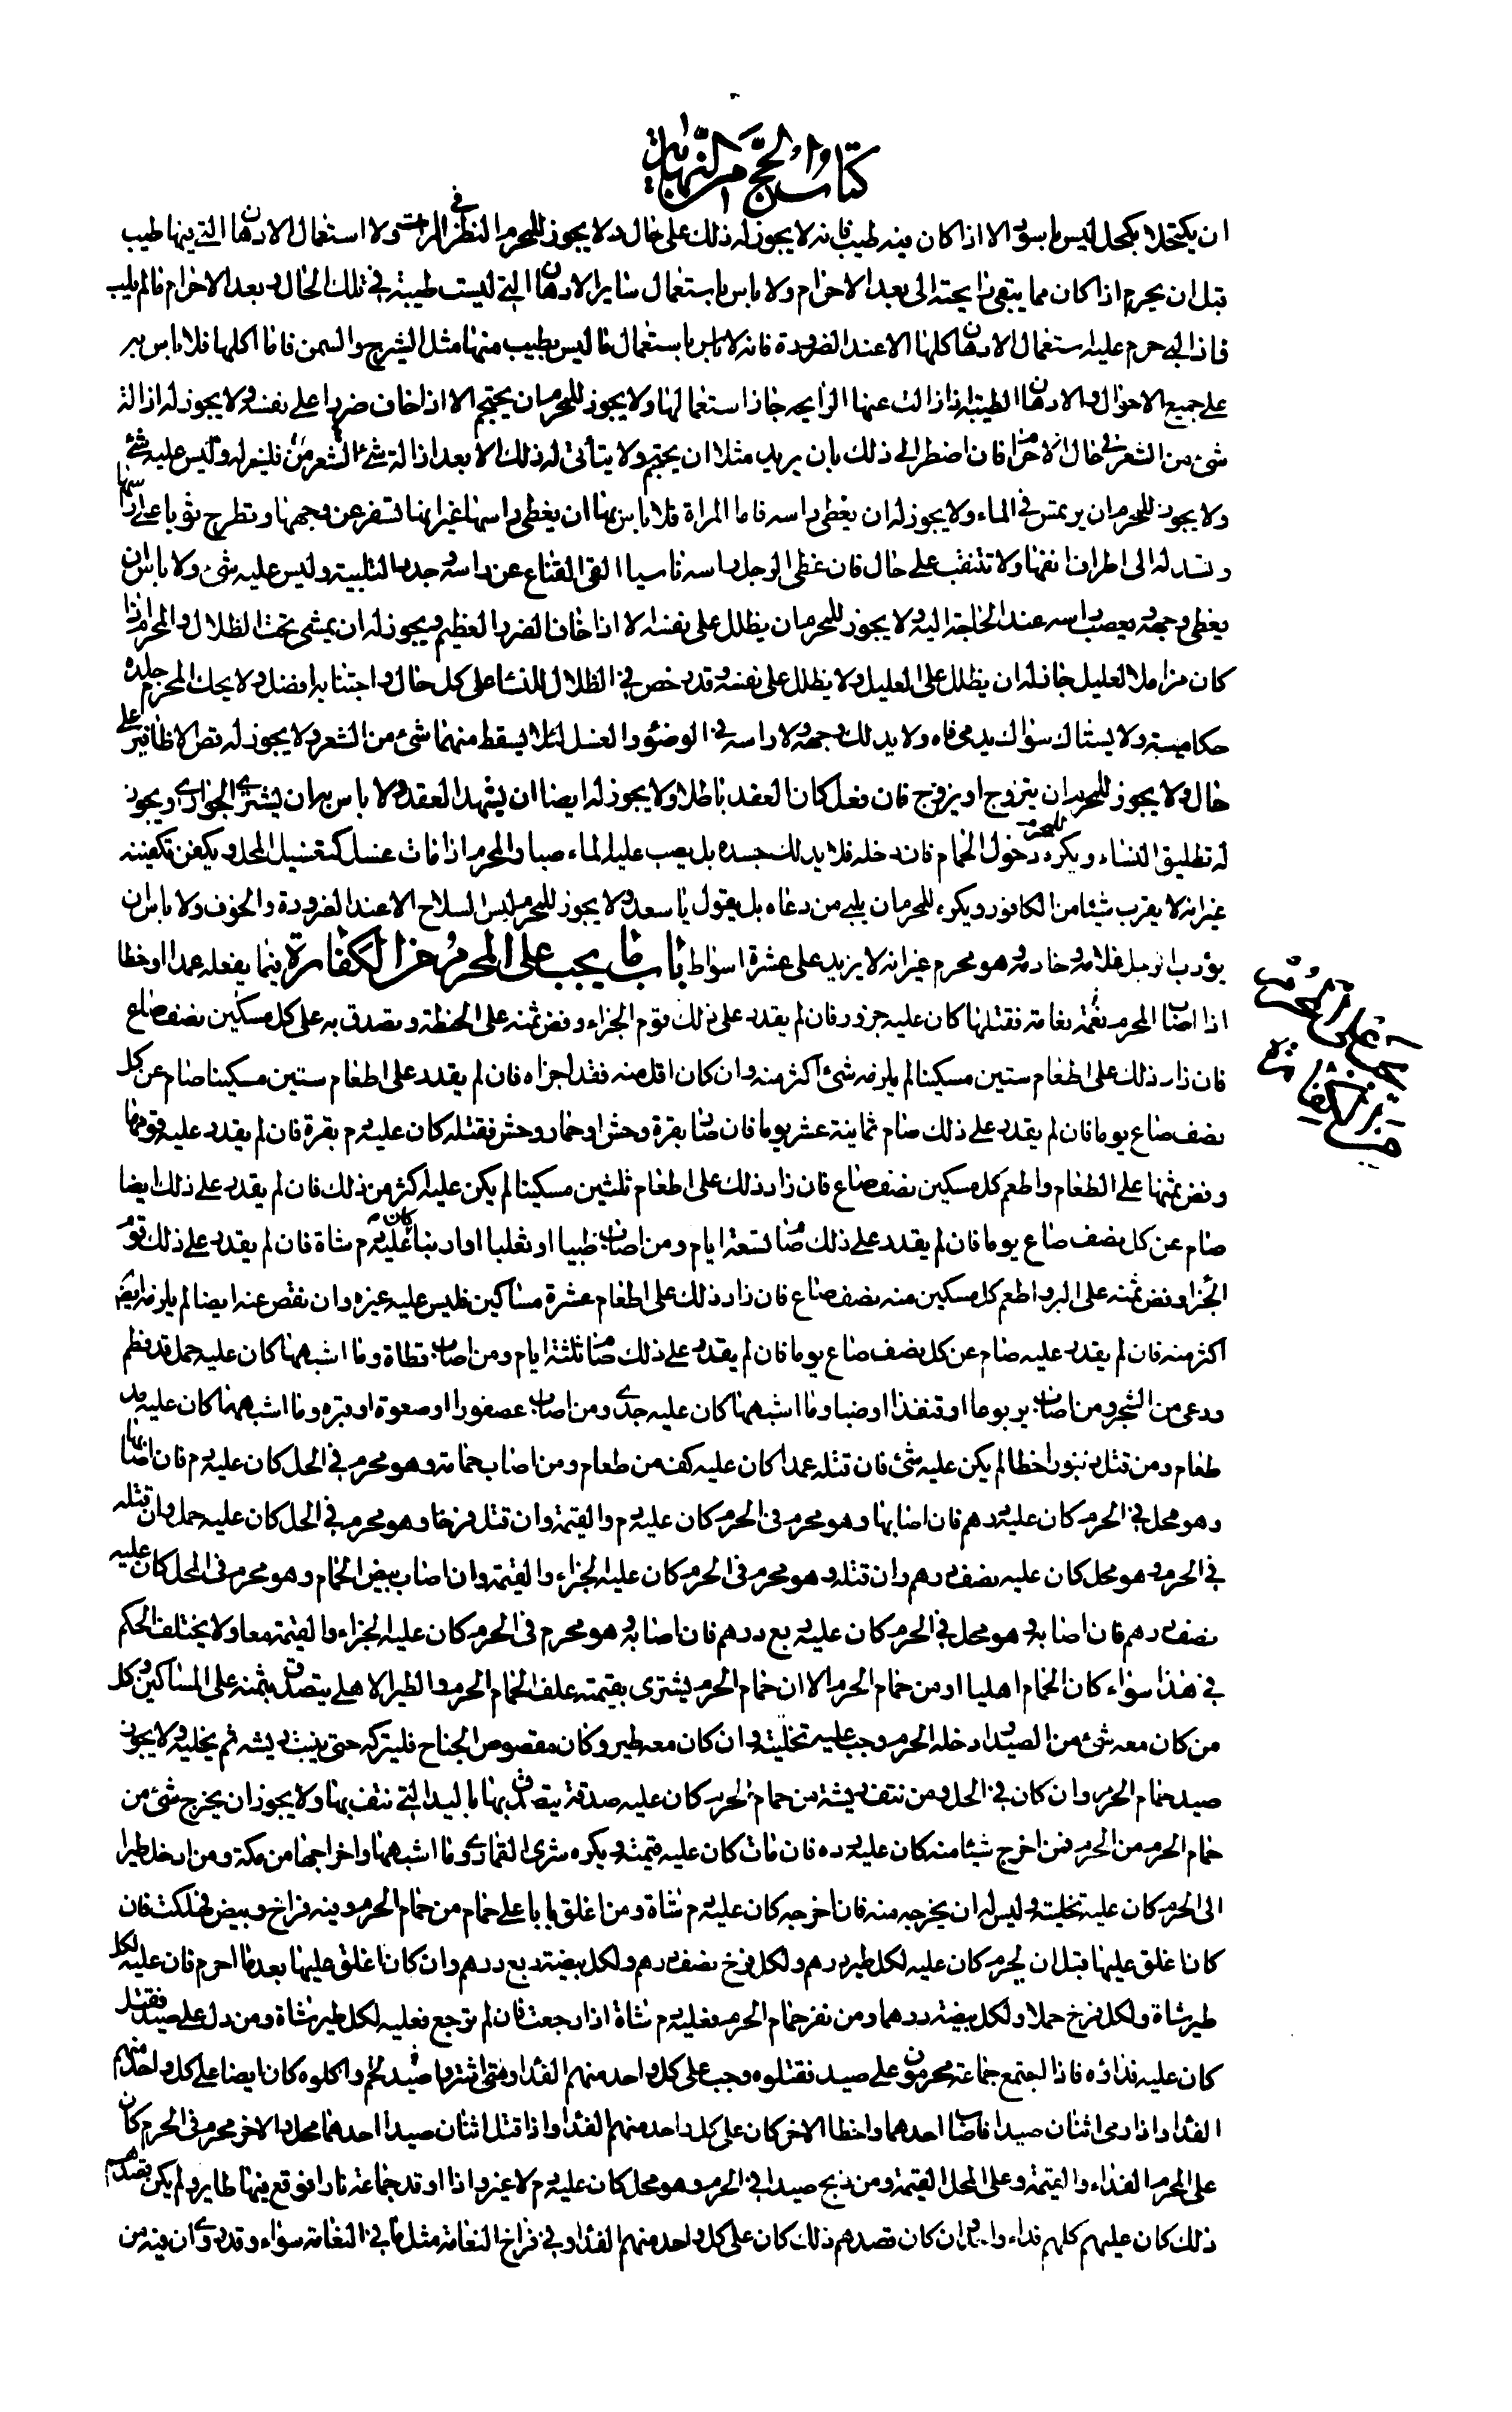 كتاب الحج من النهاية
ان يكتحلا بكحل ليس باسود الا اذا كان فيه طيب فانه لا يجوز له ذلك على حال ولا يجوز للمحرم النظر في المراة ولا استعمال الادهان التي فيها طيب
قبل ان يحرم اذا كان مما يبقى رايحته الى بعد الاحرام ولا باس باستعمال ساير الادهان التي ليست طيبة في تلك الحال وبعد الاحرام ما لم يلب
فاذا لبى حرم عليه استعمال الادهان كلها الا عند الضرورة فانه لا باس باستعمال ما ليس بطيب منها مثل الشيرج والسمن فاما اكلها فلا باس به
على جميع الاحوال والادهان الطيبة اذا زالت عنها الرايحه جاز استعمالها ولا يجوز للمحرم ان يحتجم الا اذا خاف ضررا على نفسه ولا يجوز له ازالة
شئ من الشعر في حال الاحرام فان اضطر الى ذلك بان يريد مثلا ان يحتجم ولا يتأتى له ذلك الا بعد ازالة شئ من الشعر فليزله وليس عليه شئ
ولا يجوز للمحرم ان يرتمس في الماء ولا يجوز له ان يغطى راسه فاما المراة فلا باس بها ان يغطى راسها غير انها تسفر عن وجهها وتطرح ثوبا على راسها
وتسدله الى اطراف انفها ولا تتنقب على حال فان غطى الرجل راسه ناسيا القى القناع عن راسه وجدد التلبية وليس عليه شئ ولا باس ان
يغطى وجهه ويعصب راسه عند الحاجة اليه ولا يجوز للمحرم ان يظلل على نفسه الا اذا خاف الضرر العظيم ويجوز له ان يمشى تحت الظلال والمحرم اذا
كان مزاملا لعليل جاز له ان يظلل على العليل ولا يظلل على نفسه وقد رخص في الظلال للنساء على كل حال واجتنابه افضل ولا يحك المحرم جلده
حكا يدميه ولا يستاك سواكا يدمى فاه ولا يدلك وجهه ولا راسه في الوضوء والغسل لئلا يسقط منهما شئ من الشعر ولا يجوز له قص الاظافير على
حال ولا يجوز للمحرم ان يتزوج او يزوج فان فعل كان العقد باطلا ولا يجوز له ايضا ان يشهد العقد ولا باس به ان يشترى الجوارى ويجوز
له تطليق النساء ويكره للمحرم دخول الحمام فان دخله فلا يدلك جسده بل يصب عليه الماء صبا والمحرم اذا مات غسل كتغسيل المحل ويكفن تكفينه
غير انه لا يقرب شيئا من الكافور ويكره للمحرم ان يلبى من دعاه بل يقول يا سعد ولا يجوز للمحرم لبس السلاح الا عند الضرورة والخوف ولا باس ان
يؤدب الرجل غلامه وخادمه وهو محرم غير انه لا يزيد على عشرة اسواط باب ما يجب على المحرم من الكفارة فيما يفعله عمدا او خطا
اذا اصاب المحرم نعامة فقتلها كان عليه جزور فان لم يقدر على ذلك قوم الجزاء وفض ثمنه على الحنطة وتصدق به على كل مسكين نصف صاع
فان زاد ذلك على اطعام ستين مسكينا لم يلزمه شئ اكثر منه وان كان اقل منه فقد اجزاه فان لم يقدر على اطعام ستين مسكينا صام عن كل
نصف صاع يوما فان لم يقدر على ذلك صام ثمانية عشر يوما فان صاب بقرة وحش او حمار وحش فقتله كان عليه دم بقرة فان لم يقدر عليه قومها
وفض ثمنها على الطعام واطعم كل مسكين نصف صاع فان زاد ذلك على اطعام ثلثين مسكينا لم يكن عليه اكثر من ذلك فان لم يقدر على ذلك ايضا
صام عن كل نصف صاع يوما فان لم يقدر على ذلك صام تسعة ايام ومن اصاب ظبيا او ثعلبا او ارنبا كان عليه دم شاة فان لم يقدر على ذلك قوم
الجزا وفض ثمنه على البر واطعم كل مسكين منه نصف صاع فان زاد ذلك على اطعام عشرة مساكين فليس عليه غيره وان نقص عنه ايضا لم يلزمه ايضا
اكثر منه فان لم يقدر عليه صام عن كل نصف صاع يوما فان لم يقدر على ذلك صام ثلثة ايام ومن اصاب قطاة وما اشبهها كان عليه حمل قد فطم
ورعى من الشجر ومن اصاب يربوعا او قنفذا او ضبا وما اشبهها كان عليه جدى ومن اصاب عصفورا او صعوة او قبره وما اشبههما كان عليه مد
طعام ومن قتل زنبورا خطا لم يكن عليه شئ فان قتله عمدا كان عليه كف من طعام ومن اصاب حمامة وهو محرم في الحل كان عليه دم فان اصابها
وهو محل في الحرم كان عليه درهم فان اصابها وهو محرم في الحرم كان عليه دم والقيمة وان قتل فرخا وهو محرم في الحل كان عليه حمل وان قتله
في الحرم وهو محل كان عليه نصف درهم وان قتله وهو محرم في الحرم كان عليه الجزاء والقيمة وان اصاب بيض الحمام وهو محرم في المحل كان عليه
نصف درهم فان اصابه وهو محل في الحرم كان عليه ربع درهم فان اصابه وهو محرم في الحرم كان عليه الجزاء والقيمة معا ولا يختلف الحكم
في هذا سواء كان الحمام اهليا او من حمام الحرم الا ان حمام الحرم يشترى بقيمته علف لحمام الحرم والطير الاهلى يتصدق بثمنه على المساكين وكل
من كان معه شئ من الصيد وادخله الحرم وجب عليه تخليته وان كان معه طير وكان مقصوص الجناح فليتركه حتى ينبت ريشه ثم يخليه ولا يجوز
صيد حمام الحرم وان كان في الحل ومن نتف ريشة من حمام الحرم كان عليه صدقة يتصدق بها باليد التي نتف بها ولا يجوز ان يخرج شئ من
حمام الحرم من الحرم فمن اخرج شيئا منه كان عليه رده فان مات كان عليه قيمته ويكره شرى القمارى وما اشبهها واخراجها من مكة ومن ادخل طيرا
الى الحرم كان عليه تخليته وليس له ان يخرجه منه فان اخرجه كان عليه دم شاة ومن اغلق بابا على حمام من حمام الحرم وفيه فراخ وبيض فهلكت فان
كان اغلق عليها قبل ان يحرم كان عليه لكل طير درهم ولكل فرخ نصف درهم ولكل بيضة ربع درهم وان كان اغلق عليها بعد ما احرم فان عليه لكل
طير شاة ولكل فرخ حملا ولكل بيضة درهما ومن نفر حمام الحرم فعليه دم شاة اذا رجعت فان لم ترجع فعليه لكل طير شاة ومن دل على صيد فقتل
كان عليه فداؤه فاذا اجتمع جماعة محرمون على صيد فقتلوه وجب على كل واحد منهم الفداء ومتى اشتروا لحم صيد واكلوه كان ايضا على كل واحد منهم
الفداء واذا رمى اثنان صيدا فاصاب احدهما واخطا الاخر كان على كل واحد منهم الفداء واذا قتل اثنان صيدا احدهما محل والاخر محرم في الحرم كان
على المحرم الفداء والقيمة وعلى المحل القيمة ومن ذبح صيدا في الحرم وهو محل كان عليه دم لا غير واذا اوقد جماعة نارا فوقع فيها طاير ولم يكن قصدهم
ذلك كان عليهم كلهم فداء واحد وان كان قصدهم ذلك كان على كل واحد منهم الفداء وفي فراخ النعامة مثل ما في النعامة سواء وقد روى ان فيه من
يجب على المحرم
من الكفارة